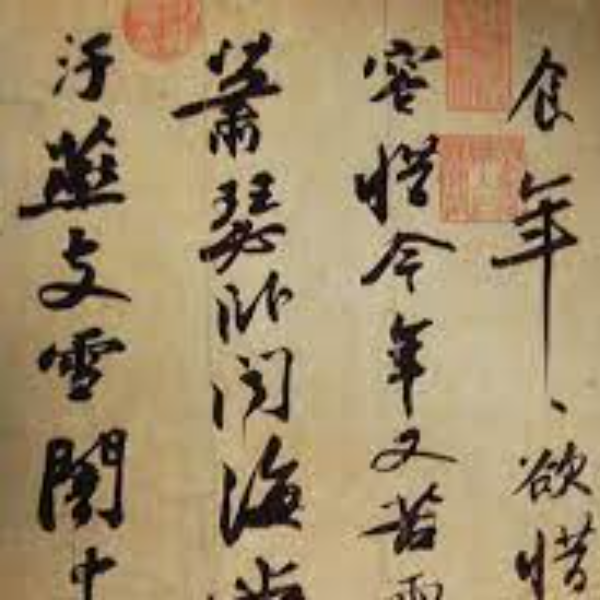 食年〻欲惜
容惜今年又苦雨
蕭瑟卧聞海棠
汙燕支雪闇中